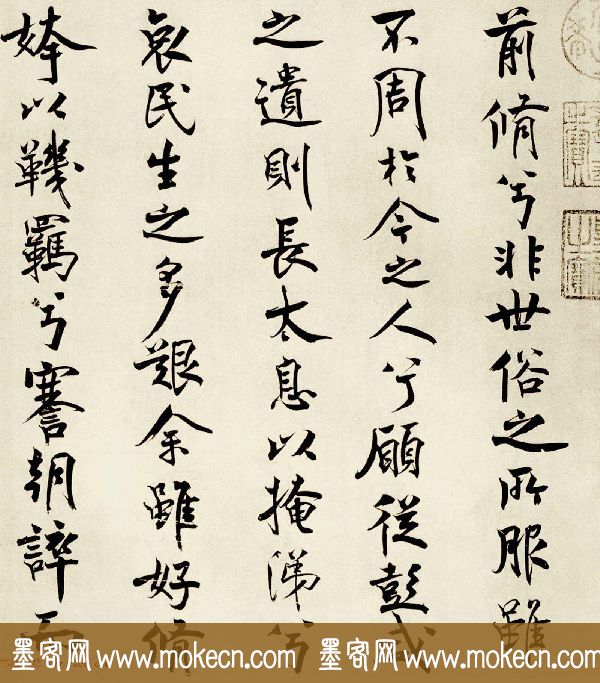 前脩兮非世俗之所服雖
不周於今之人兮願從彭咸
之遺則長太息以掩涕兮
哀民生之多艱余雖好脩
姱以鞿羈兮謇朝誶而
墨客网 www.mokecn.com 墨客网 www.mokecn.com